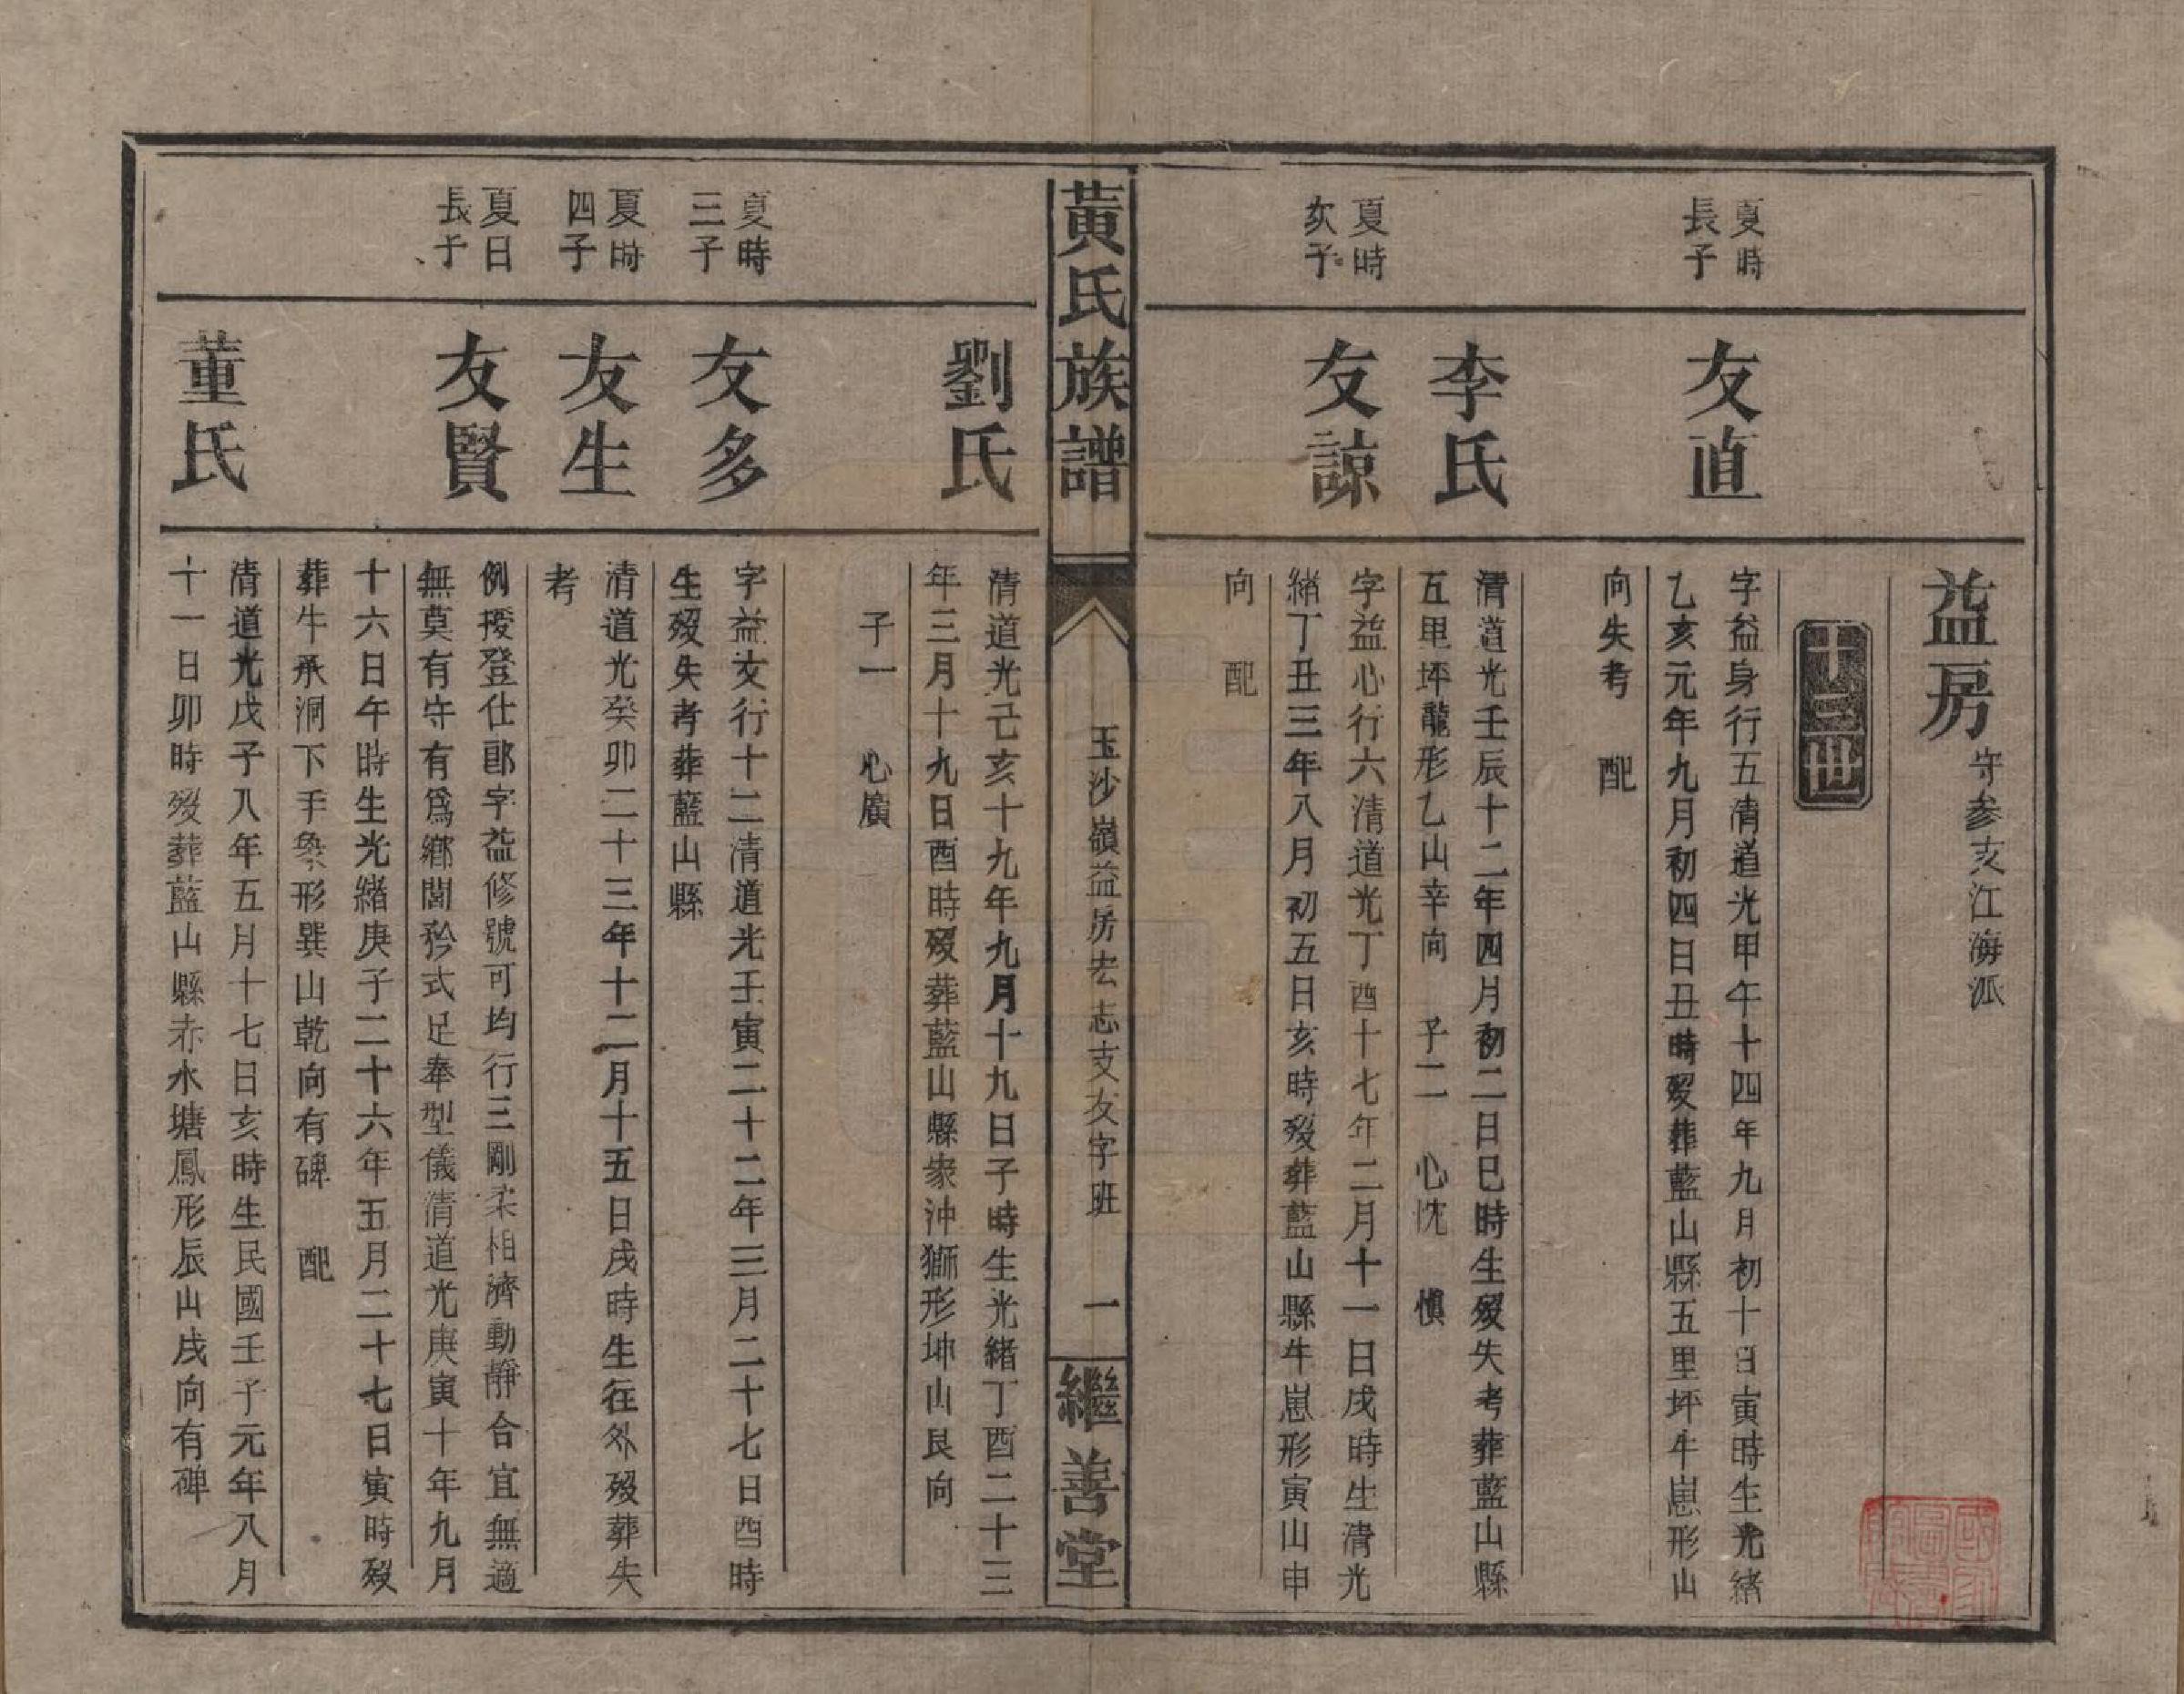 益房 守參支江海派
十三世
夏時
長子
友直
字益身行五清道光甲午十四年九月初十日寅時生光緒
乙亥元年九月初四日丑時歿葬藍山縣五里坪牛崽形山
向失考 配
李氏
清道光壬辰十二年四月初二日巳時生歿失考葬藍山縣
五里坪龍形乙山辛向 子二 心忱 慎
夏時
次子
友諒
字益心行六清道光丁酉十七年二月十一日戌時生清光
緒丁丑三年八月初五日亥時歿葬藍山縣牛崽形寅山申
向 配
黃氏族譜
玉沙嶺益房宏志支友字班 一
繼善堂
劉氏
清道光己亥十九年九月十九日子時生光緒丁酉二十三
年三月十九日酉時歿葬藍山縣家沖獅形坤山艮向
子一 心廣
夏時
三子
友多
字益友行十二清道光壬寅二十二年三月二十七日酉時
生歿失考葬藍山縣
夏時
四子
友生
清道光癸卯二十三年十二月十五日戌時生往外歿葬失
考
夏日
長子
友賢
例授登仕郎字益修號可均行三剛柔相濟動靜合宜無適
無莫有守有為鄉閭矜式足奉型儀清道光庚寅十年九月
十六日午時生光緒庚子二十六年五月二十七日寅時歿
葬牛承洞下手象形巽山乾向有碑 配
董氏
清道光戊子八年五月十七日亥時生民國壬子元年八月
十一日卯時歿葬藍山縣赤水塘鳳形辰山戌向有碑